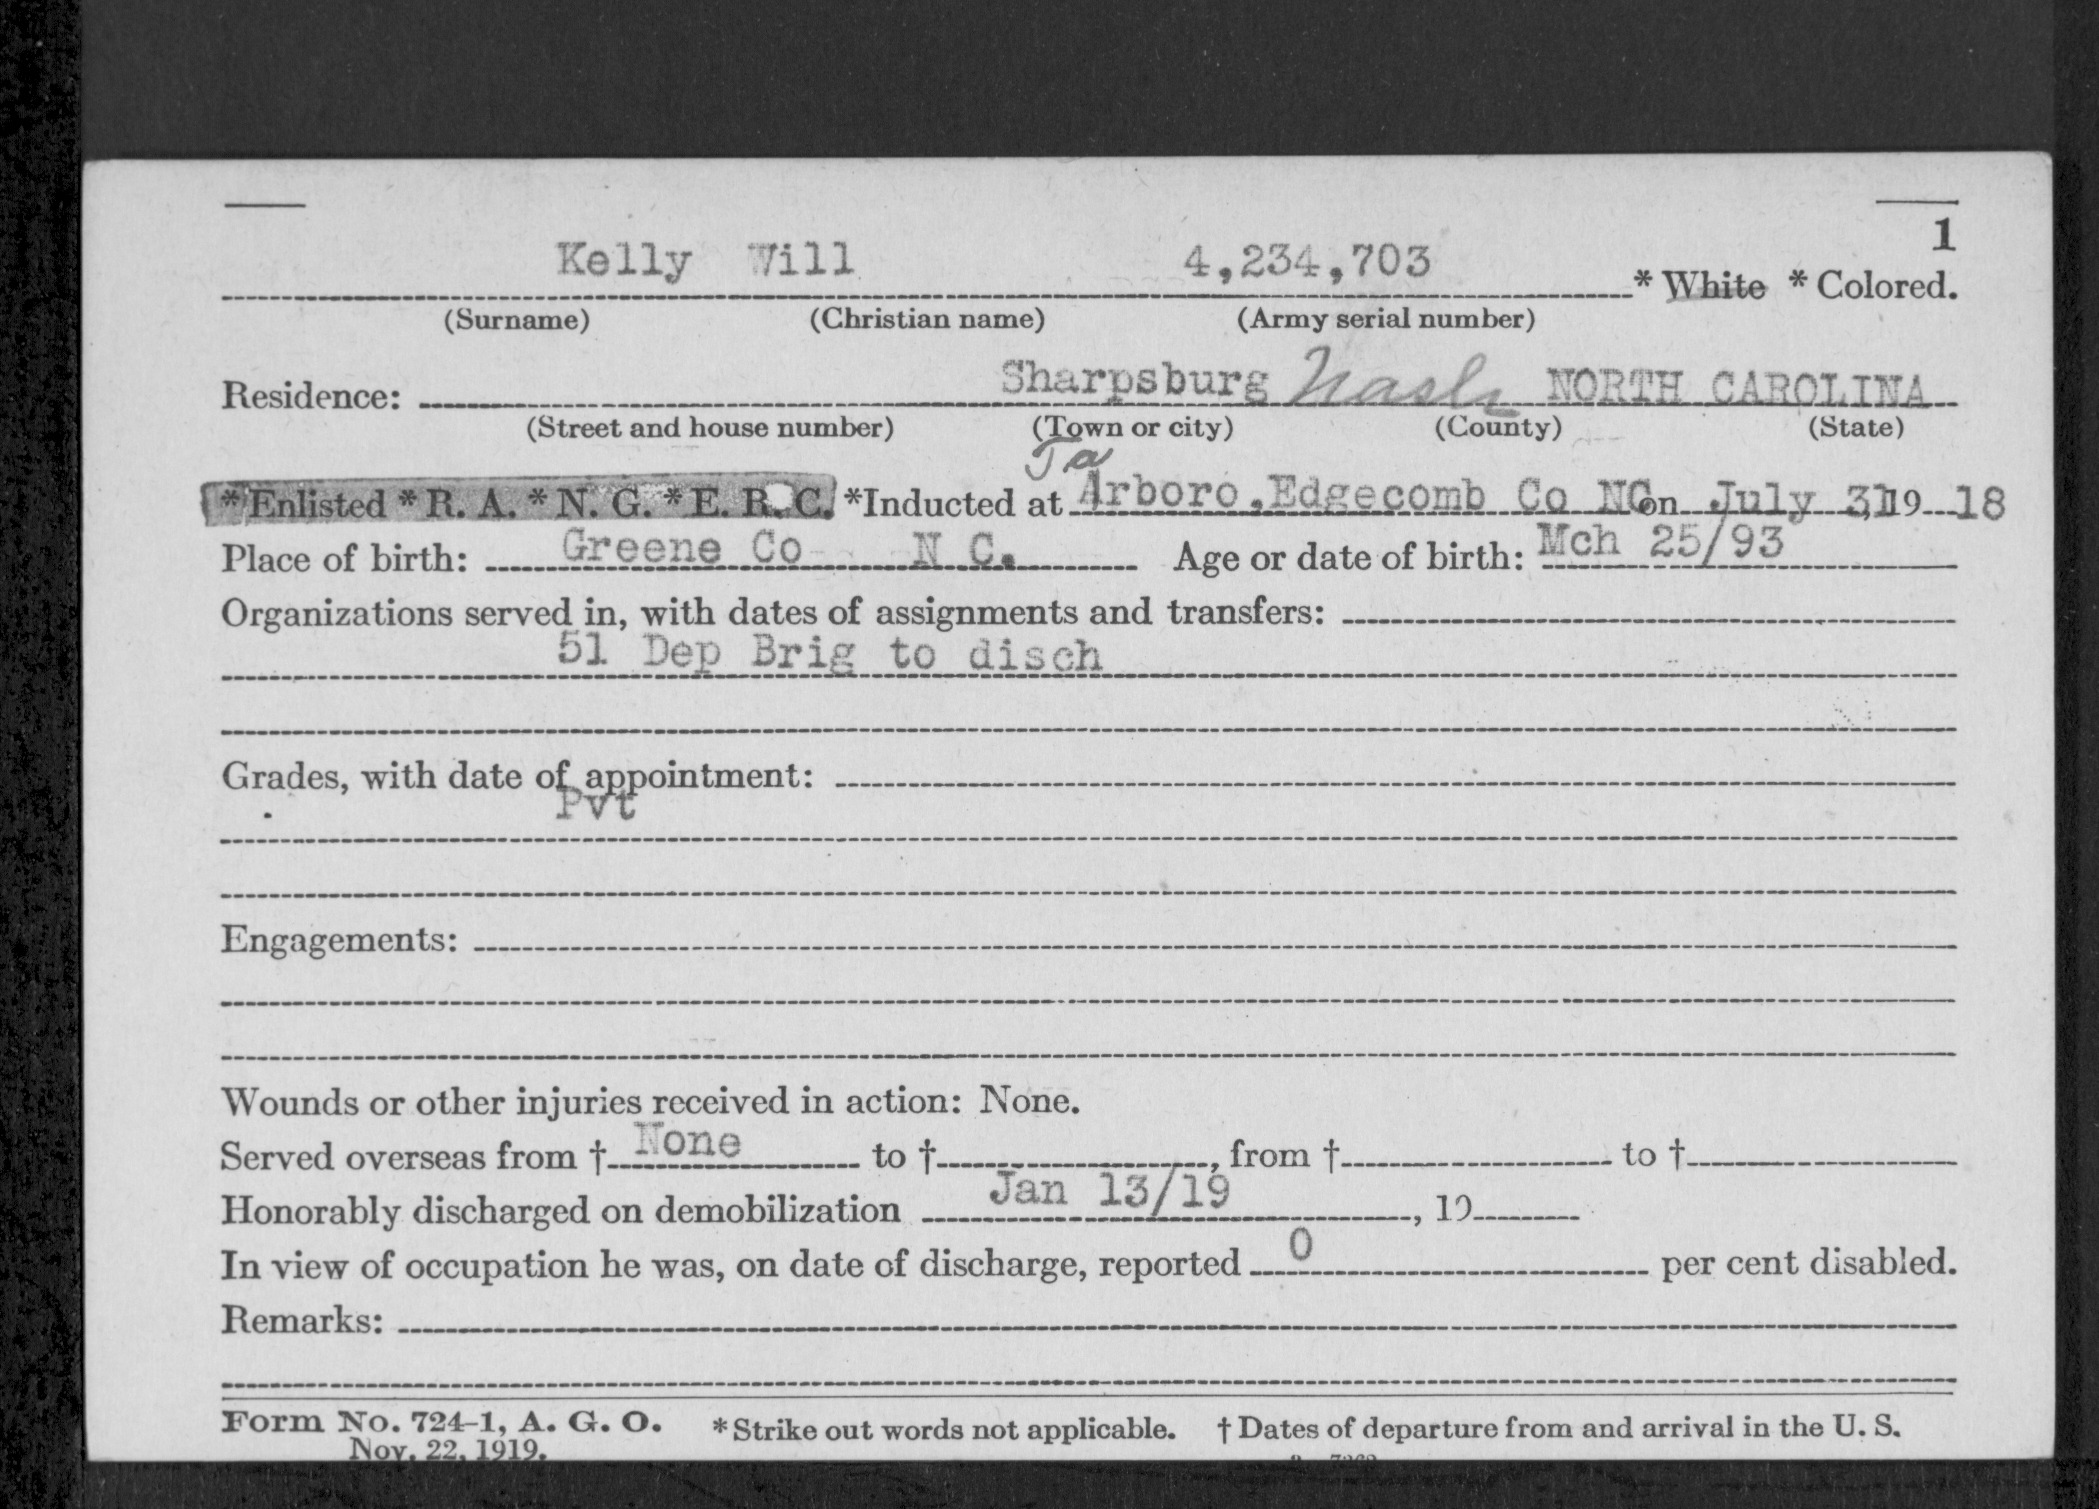 1
Kelly Will 4,234,703 * White * Colored.
(Surname) (Christian name) (Army serial number)
Residence: Sharpsburg Nash NORTH CAROLINA
(Street and house number) (Town or city) (County) (State)
Ta
*Enlisted *R. A. *N. G. *E. R. C. *Inducted at Arboro, Edgecomb Co NC on July 31, 19 18
Place of birth: Greene Co N C. Age or date of birth: Mch 25/93
Organizations served in, with dates of assignments and transfers:
51 Dep Brig to disch
Grades, with date of appointment:
Pvt
Engagements:
Wounds or other injuries received in action: None.
Served overseas from † None to †, from † to †
Honorably discharged on demobilization Jan 13/19, 19
In view of occupation he was, on date of discharge, reported 0 per cent disabled.
Remarks:
Form No. 724-1, A. G. O. *Strike out words not applicable. † Dates of departure from and arrival in the U. S.
Nov. 22, 1919.